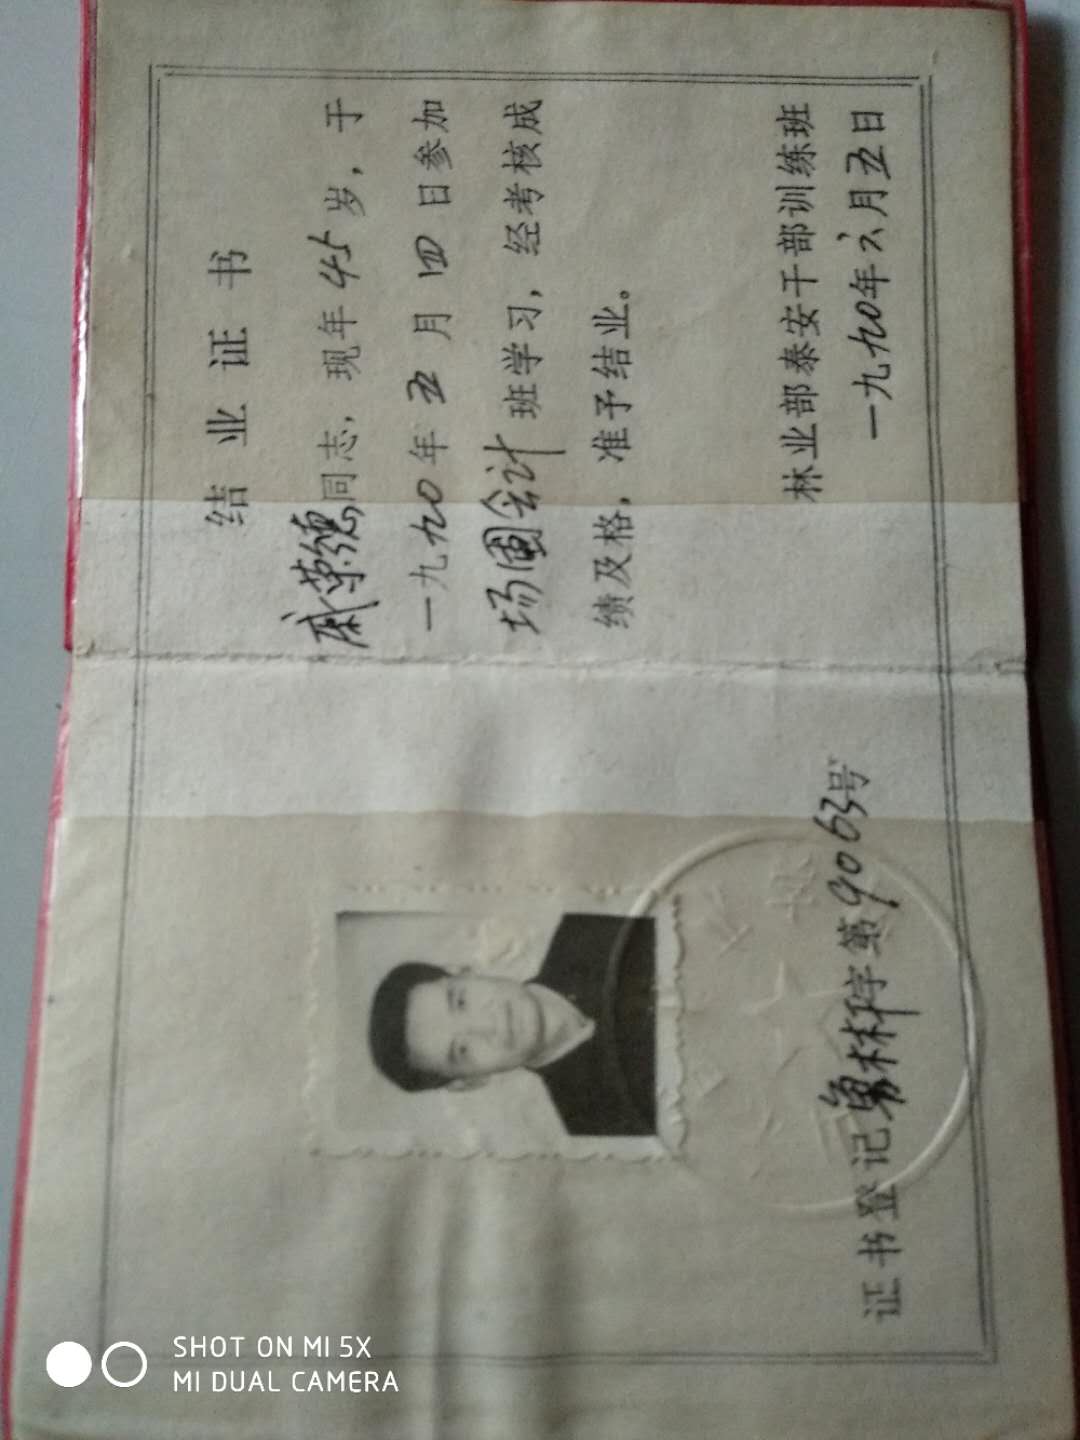 结业证书
戚荣德同志，现年45岁，于
一九九〇年五月四日参加
场圃会计班学习，经考核成
绩及格，准予结业。
林业部泰安干部训练班
一九九〇年六月五日
证书登记鲁林科字第9063号
SHOT ON MI 5X
MI DUAL CAMERA